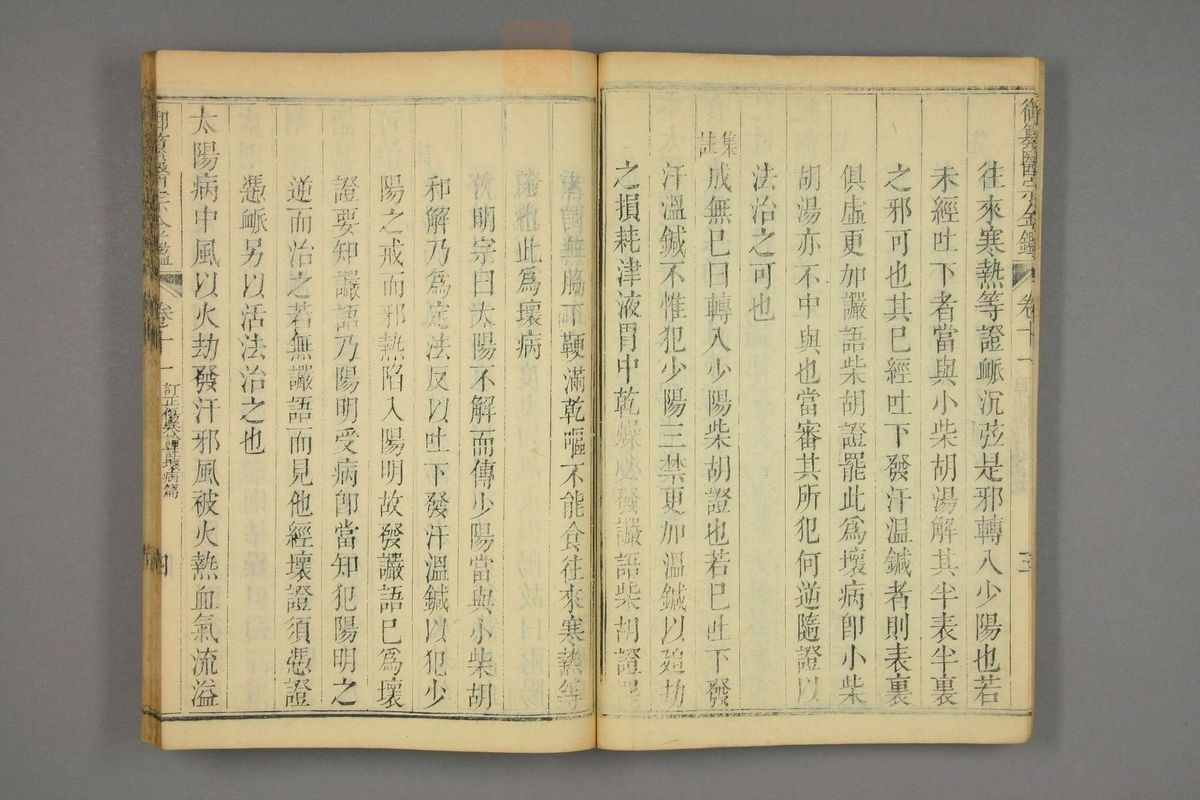 御纂醫宗金鑑 卷十一 三
往來寒熱等證脈沉弦是邪轉入少陽也若
未經吐下者當與小柴胡湯解其半表半裏
之邪可也其已經吐下發汗溫鍼者則表裏
俱虛更加讝語柴胡證罷此爲壞病卽小柴
胡湯亦不中與也當審其所犯何逆隨證以
法治之可也
集註成無已曰轉入少陽柴胡證也若已吐下發
汗溫鍼不惟犯少陽三禁更加溫鍼以廹劫
之損耗津液胃中乾燥必發讝語柴胡證罷
此爲壞病
脇下鞕滿乾嘔不能食往來寒熱等
明宗曰太陽不解而傳少陽當與小柴胡
和解乃爲定法反以吐下發汗溫鍼以犯少
陽之戒而邪熱陷入陽明故發讝語已爲壞
證要知讝語乃陽明受病卽當知犯陽明之
逆而治之若無讝語而見他經壞證須憑證
憑脈另以活法治之也
太陽病中風以火劫發汗邪風被火熱血氣流溢
御纂醫宗金鑑 卷十一 訂正傷寒論註壞病篇 四